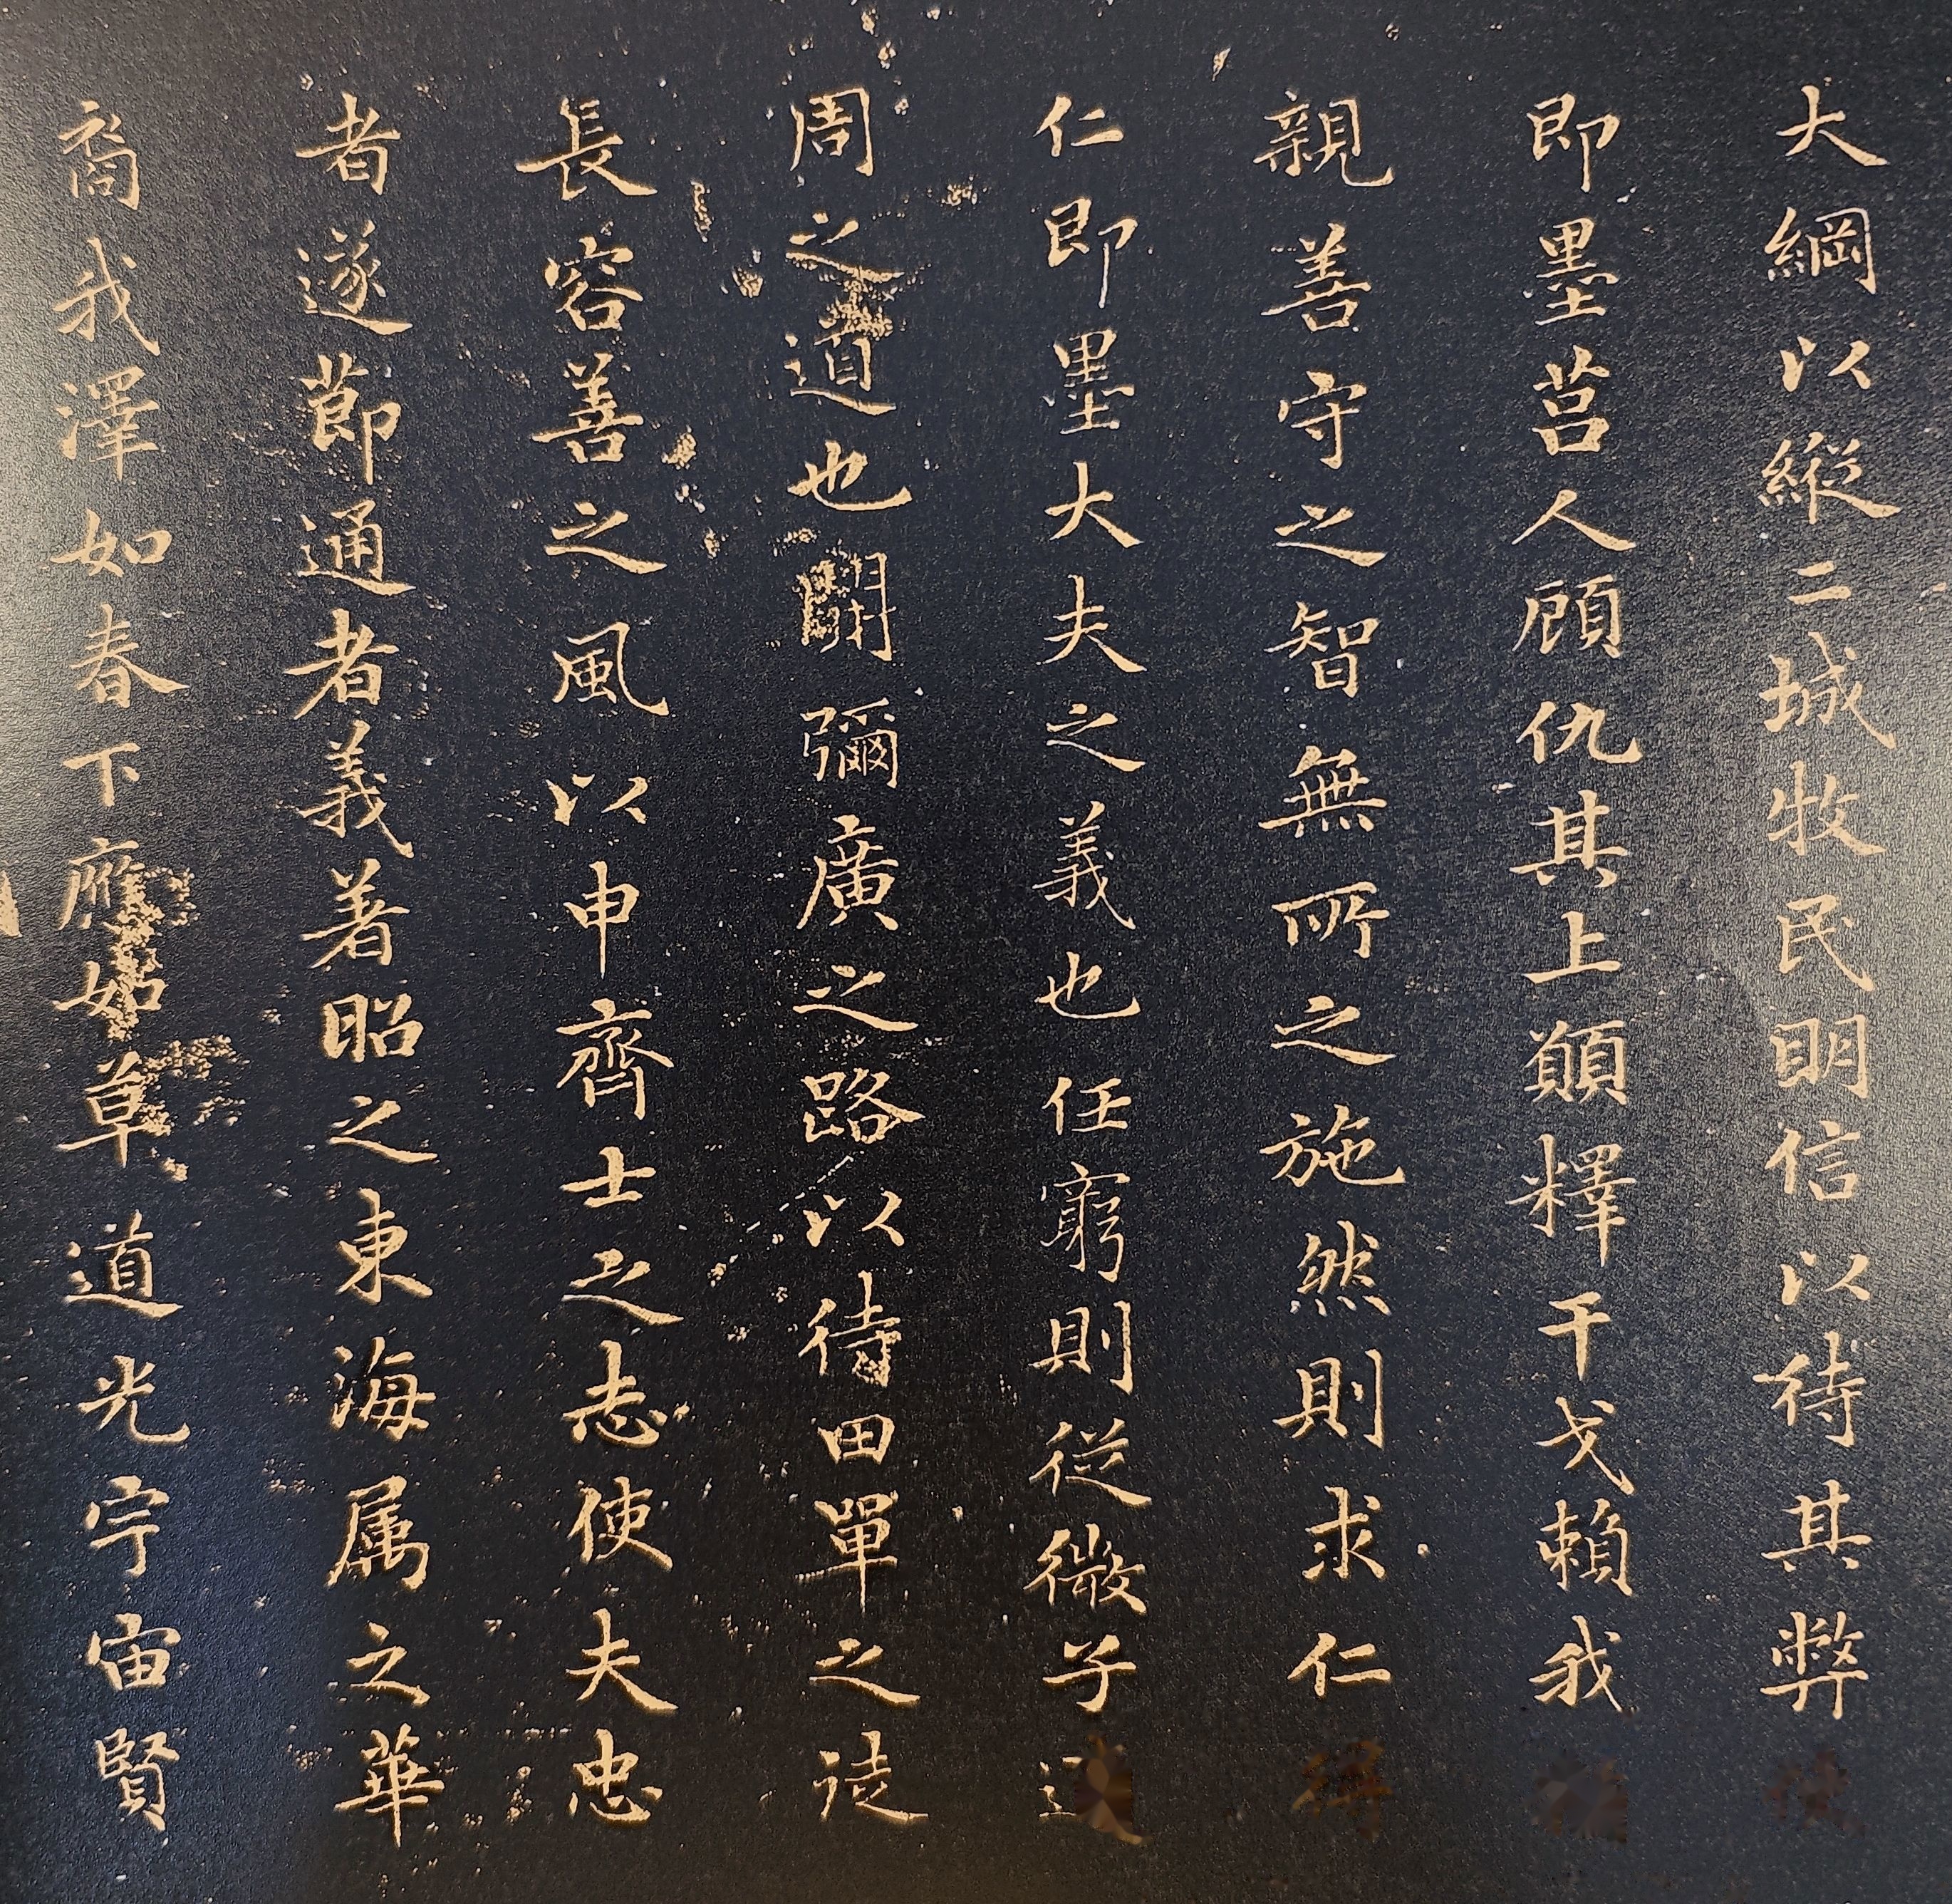 大綱以縱二城牧民明信以待其弊
即墨莒人顧仇其上願釋干戈賴我
親善守之智無所之施然則求仁
仁即墨大夫之義也任窮則從微子
周之道也開彌廣之路以待田單之徒
長容善之風以申齊士之志使夫忠
者遂節通者義著昭之東海属之華
裔我澤如春下應如草道光宇宙賢